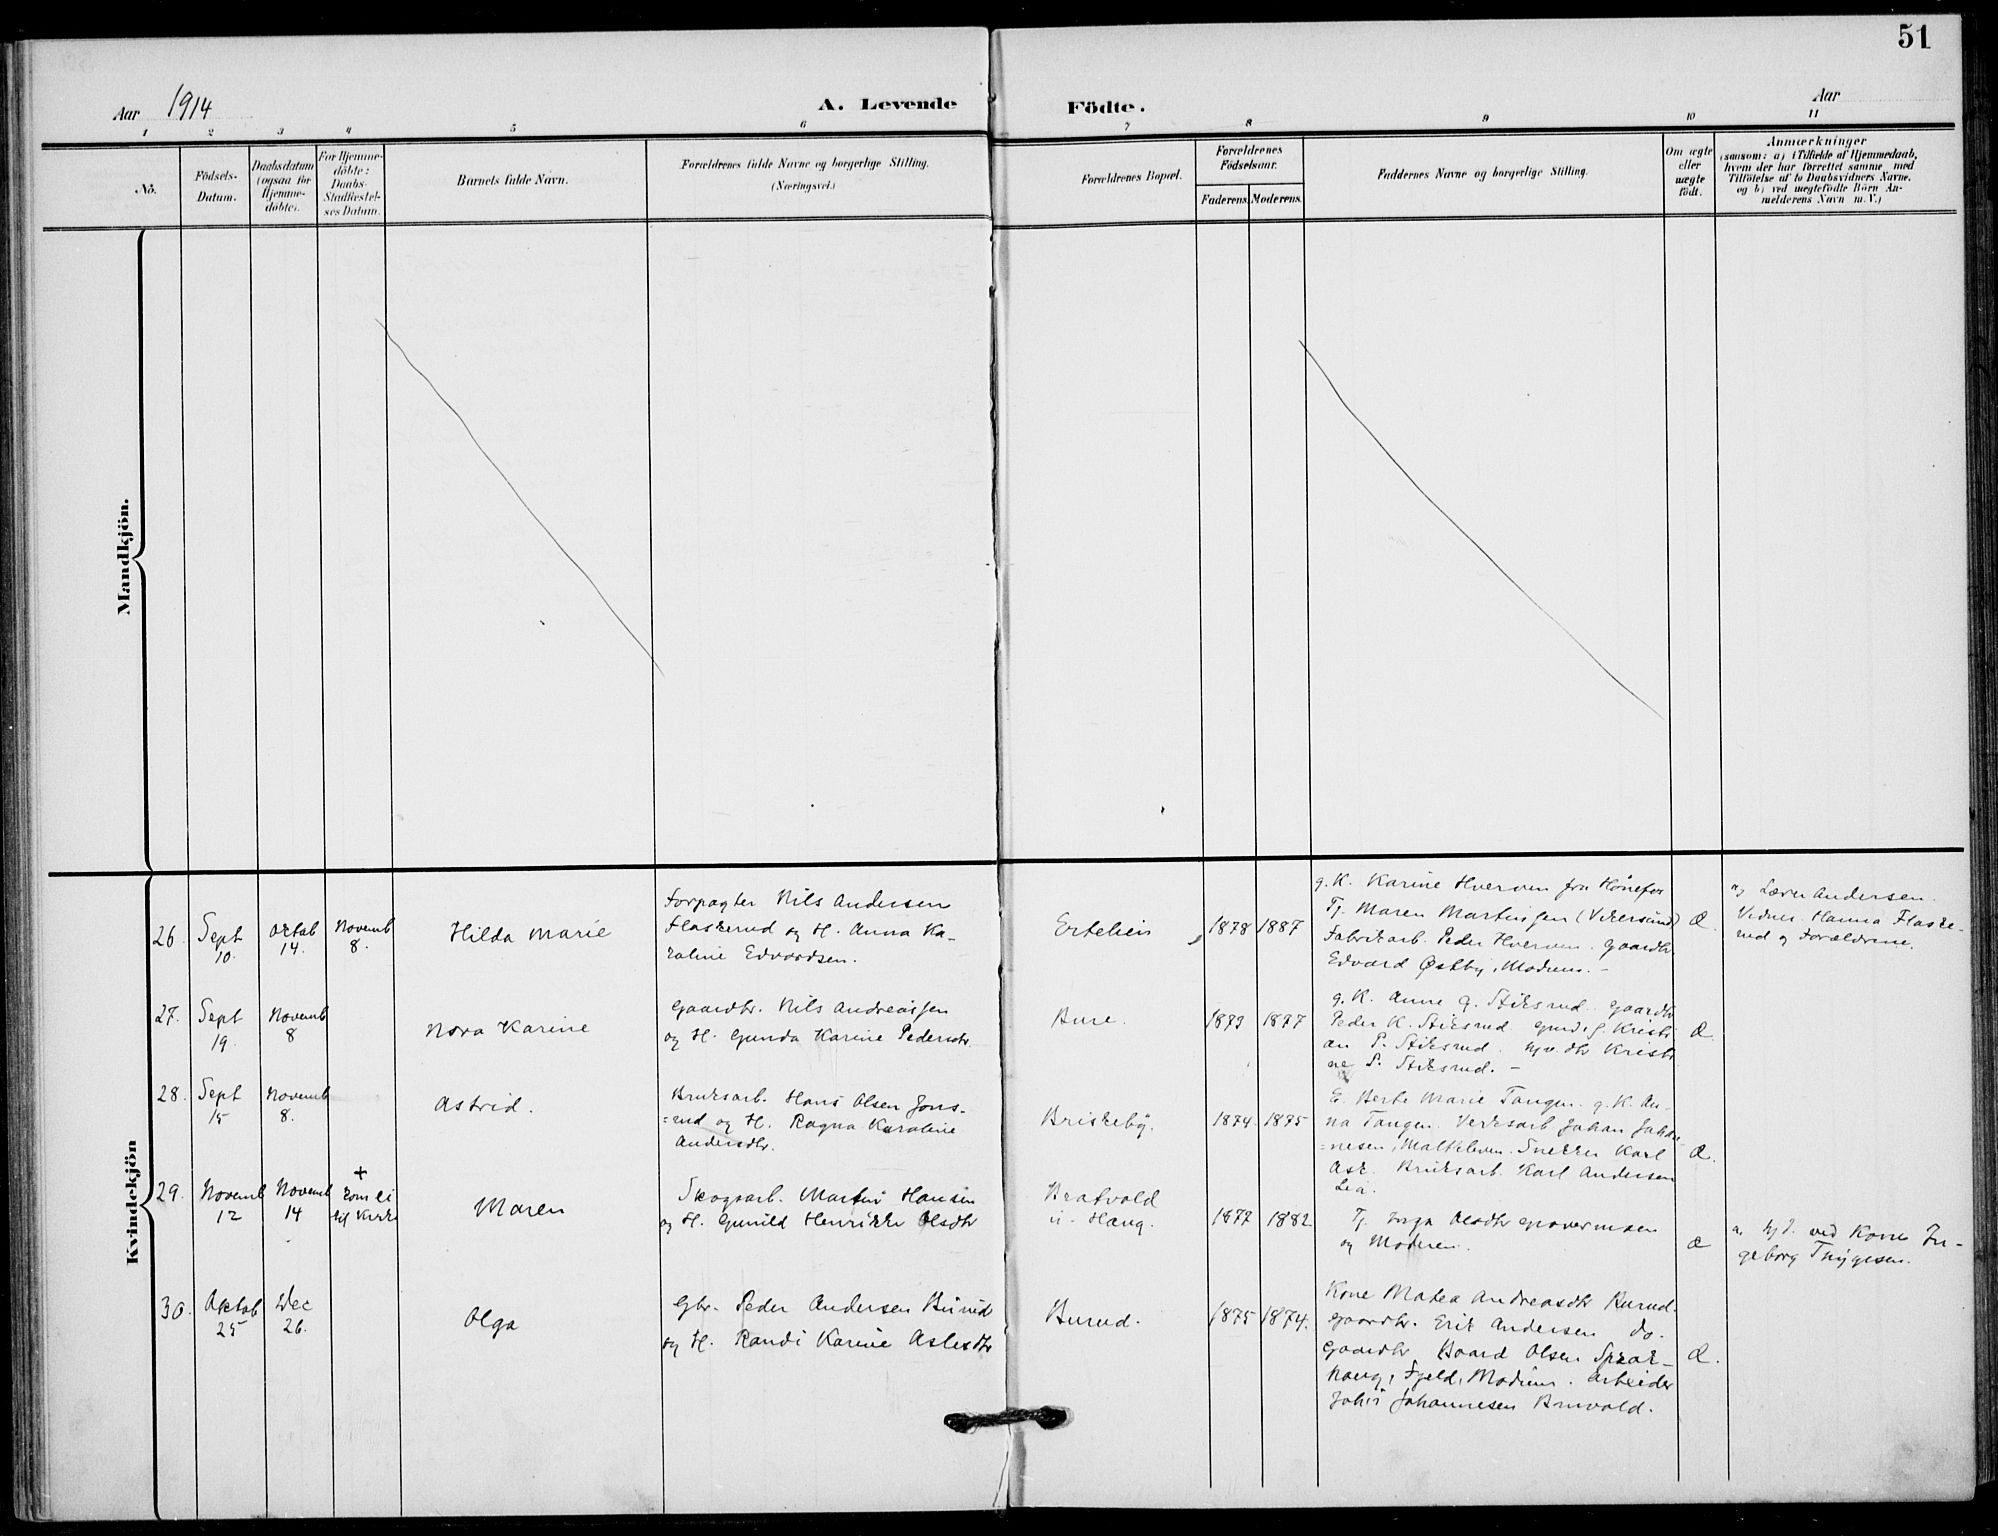 51
Aar 1914
A. Levende
Födte.
Aar
1 2 3 4 5 6 7 8 9 10 11
No.
Födsels-
Datum.
Daabsdatum
(ogsaa for
Hjemme-
döbte).
For Hjemme-
döbte:
Daabs-
Stadfæstel-
ses Datum.
Barnets fulde Navn.
Forældrenes fulde Navne og borgerlige Stilling.
(Næringsvei.)
Forældrenes Bopæl.
Forældrenes
Födselsaar.
Faderens. Moderens.
Faddernes Navne og borgerlige Stilling.
Om ægte
eller
uægte
födt.
Anmærkninger
(saasom: a) i Tilfælde af Hjemmedaab,
hvem der har forrettet samme med
Tilföielse af to Daabsvidners Navne,
og b) ved uægtefödte Börn An-
melderens Navn m. V.)
Mandkjön.
Kvindekjön
26.
Sept
10.
Oktob
14.
Novemb
8.
Hilda Marie
Forpagter Nils Andersen
Flaskerud og H. Anna Ka-
roline Edvardsen.
Ertelien
1878 1887
g. K. Karine Hverven fra Hönefos
Tj. Maren Martinsen (Vikersund)
Fabrikarb. Peder Hverven. Gaardbr.
Edvard Østby, Modum. -
Æ.
a, Lærer Andersen.
Vidner. Hanna Flaske-
rud og Forældrene.
27.
Sept
19.
Novemb
8
Nora Karine
Gaardbr. Nils Andreassen
og H. Gunda Karine Pedersdtr.
Bure.
1873 1877
g. K. Anne G. Stiksrud. Gaardbr
Peder K. Stiksrud Gmds. Kristi
an P. Stiksrud. Hjv. dtr Kristi
ne P. Stiksrud. -
Æ.
28.
Sept
15
Novemb
8.
Astrid.
Bruksarb. Hans Olsen Jons-
=rud og H. Ragna Karoline
Andersdtr.
Briskeby.
1874. 1875
E. Berte Marie Tangen. g. K. An-
na Tangen. Verksarb Johan Johan-
=nesen, Snekker Karl
Ask. Bruksarb. Karl Andersen
Lia.
Æ.
29.
Novemb
12
Novemb
14
+
kom ei
til Kirke
Maren
Skogsarb. Martin Hansen
og H. Gunild Henrikke Olsdtr
Bratvold
u. Haug.
1877 1882.
Tj. Inga Olsdtr
og Moderen.
Æ
a. Hjd. ved Kone In-
geborg Thygesen.
30.
Oktob
25
Dec
26.
Olga
Gbr. Peder Andersen Burud
og H. Randi Karine Aslesdtr
Burud.
1875 1874.
Kone Matea Andreasdtr Burud.
Gaardbr. Erik Andersen do.
Gaardbr Baard Olsen Sprak-
haug, Fjeld, Modum. Arbeider
Johs Johannesen Bruvold.
Æ.